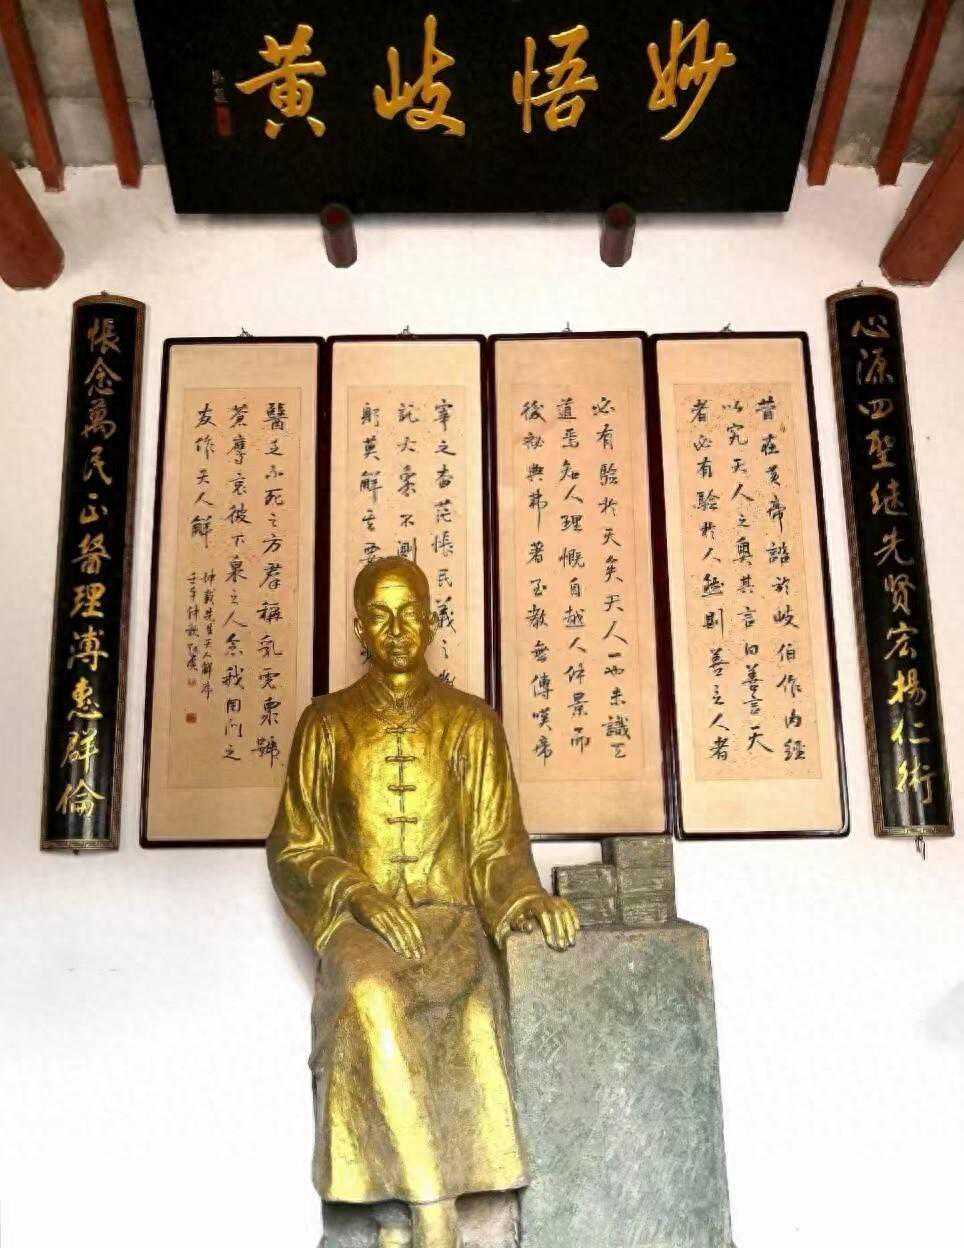 妙悟岐黄
心源四聖继先贤宏揚仁術
昔在黄帝諮於岐伯作内經
以究天人之奥其言曰善言天
者必有驗於人然則善言人者
必有驗於天矣天人一也未識天
道焉知人理慨自越人仲景而
後祕典弗著至教無傳嘆帝
宰之杳茫悵民義之
託大象不測
躬莫解言要
醫乏不死之方群稱乳虎栗號
蒼鷹哀彼下泉之人念我同門之
友作天人解
坤載先生天人解
壬午仲秋
悵念萬民正醫理溥惠群倫